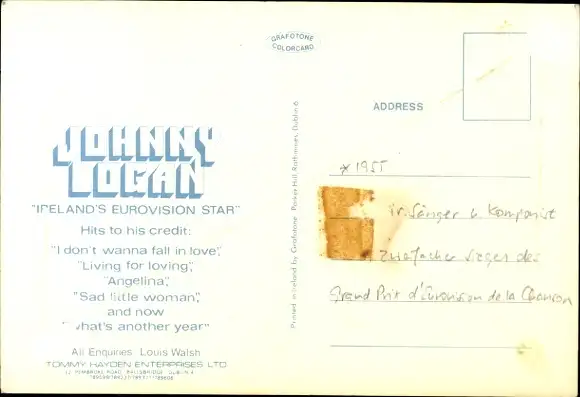 GRAFOTONE
COLORCARD
JOHNNY
LOGAN
"IRELAND'S EUROVISION STAR"
Hits to his credit:
"I don't wanna fall in love",
"Living for loving",
"Angelina",
"Sad little woman",
and now
"what's another year"
All Enquiries Louis Walsh
TOMMY HAYDEN ENTERPRISES LTD
PEMBROKE ROAD BALLSBRIDGE DUBLIN 4
Printed in Ireland by Grafotone Parker Hill, Rathmines, Dublin 6
ADDRESS
* 1955
ir. Sänger u. Komponist
zweifacher Sieger des
Grand Prix d'Eurovision de la Chanson